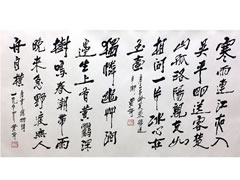 寒雨連江夜入
吴平明送客楚
山孤洛陽親友如
相問一片冰心在
玉壺
獨憐幽草澗
邊生上有黄鸝深
樹鳴春潮帶雨
晚來急野渡無人
舟自横